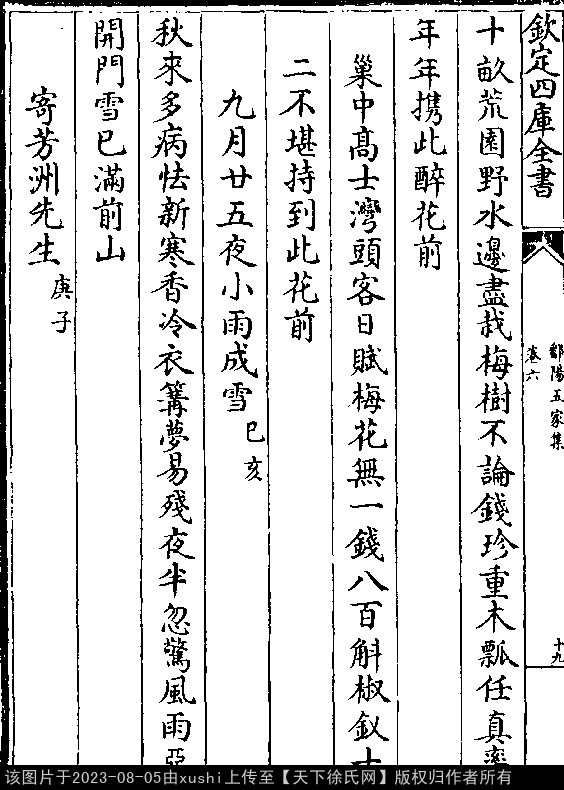 欽定四庫全書
鄱陽五家集
卷六
十九
十畝荒園野水邊盡栽梅樹不論錢珍重木瓢任真率
年年携此醉花前
巢中髙士灣頭客日賦梅花無一錢八百斛椒釵十
二不堪持到此花前
九月廿五夜小雨成雪已亥
秋來多病怯新寒香冷衣篝夢易殘夜半忽驚風雨惡
開門雪已滿前山
寄芳洲先生庚子
该图片于2023-08-05由xushi上传至【天下徐氏网】版权归作者所有